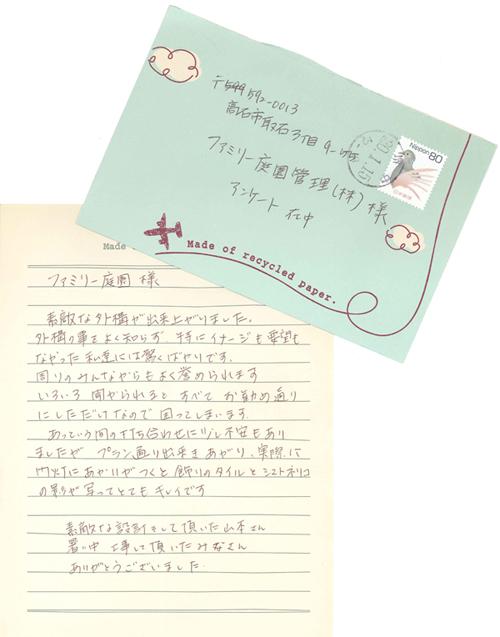 〒599 592-0013
高石市取石3丁目9-
ファミリー庭園管理(株)様
アンケート 在中
Nippon 80
日本郵便
20.1.15
Made of recycled paper.
Made
ファミリー庭園 様
素敵な外構が出来上がりました。
外構の事をよく知らず 特にイメージも要望も
なかった私達には驚くばかりです。
周りのみんなからもよく誉められます
いろいろ 聞かられると すべて お勧め通り
にしただけなので 困ってしまいます.
あっという間の打ち合わせに少し不安もあり
ましたが プラン通り出来きあがり、実際に
門灯にあかりがつくと 飾りのタイルとシマトネリコ
の影が写ってとてもキレイです
素敵な設計をして頂いた山本さん
暑い中 工事して頂いたみなさん
ありがとうございました.